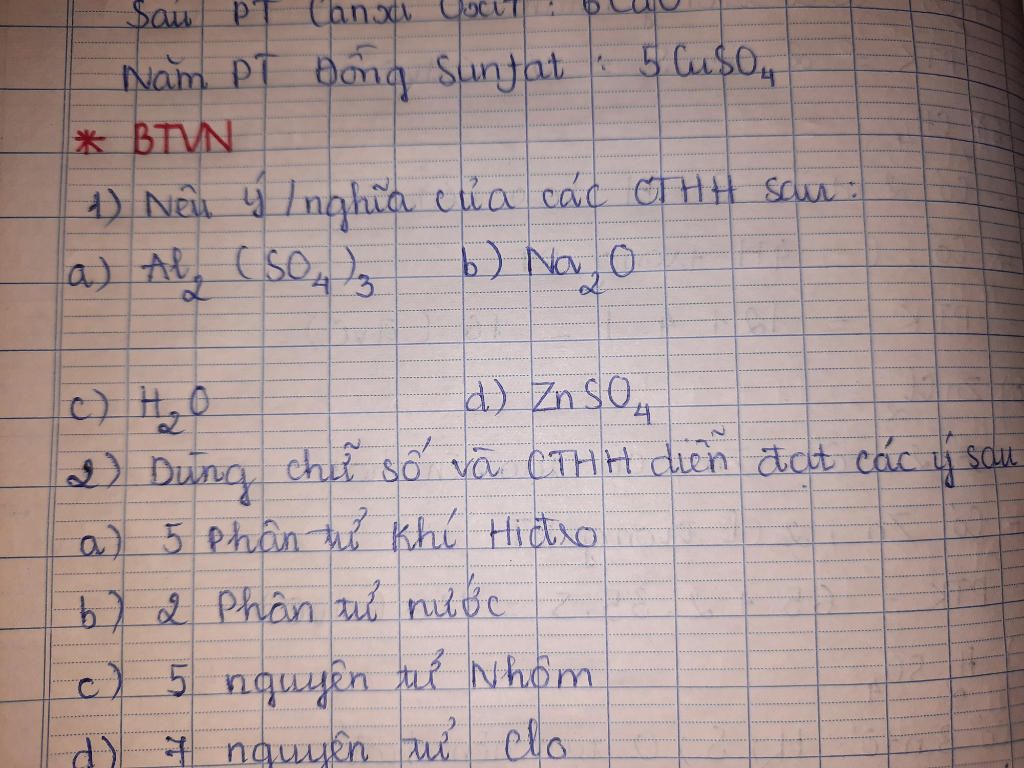 Sáu PT Canxi Oxit : 6CaO
Năm PT Đồng Sunfat : 5CuSO₄
* BTVN
1) Nêu ý nghĩa của các CTHH sau :
a) Al₂(SO₄)₃ b) Na₂O
c) H₂O d) ZnSO₄
2) Dùng chữ số và CTHH diễn đạt các ý sau
a) 5 phân tử khí Hiđro
b) 2 Phân tử nước
c) 5 nguyên tử Nhôm
d) 7 nguyên tử Clo